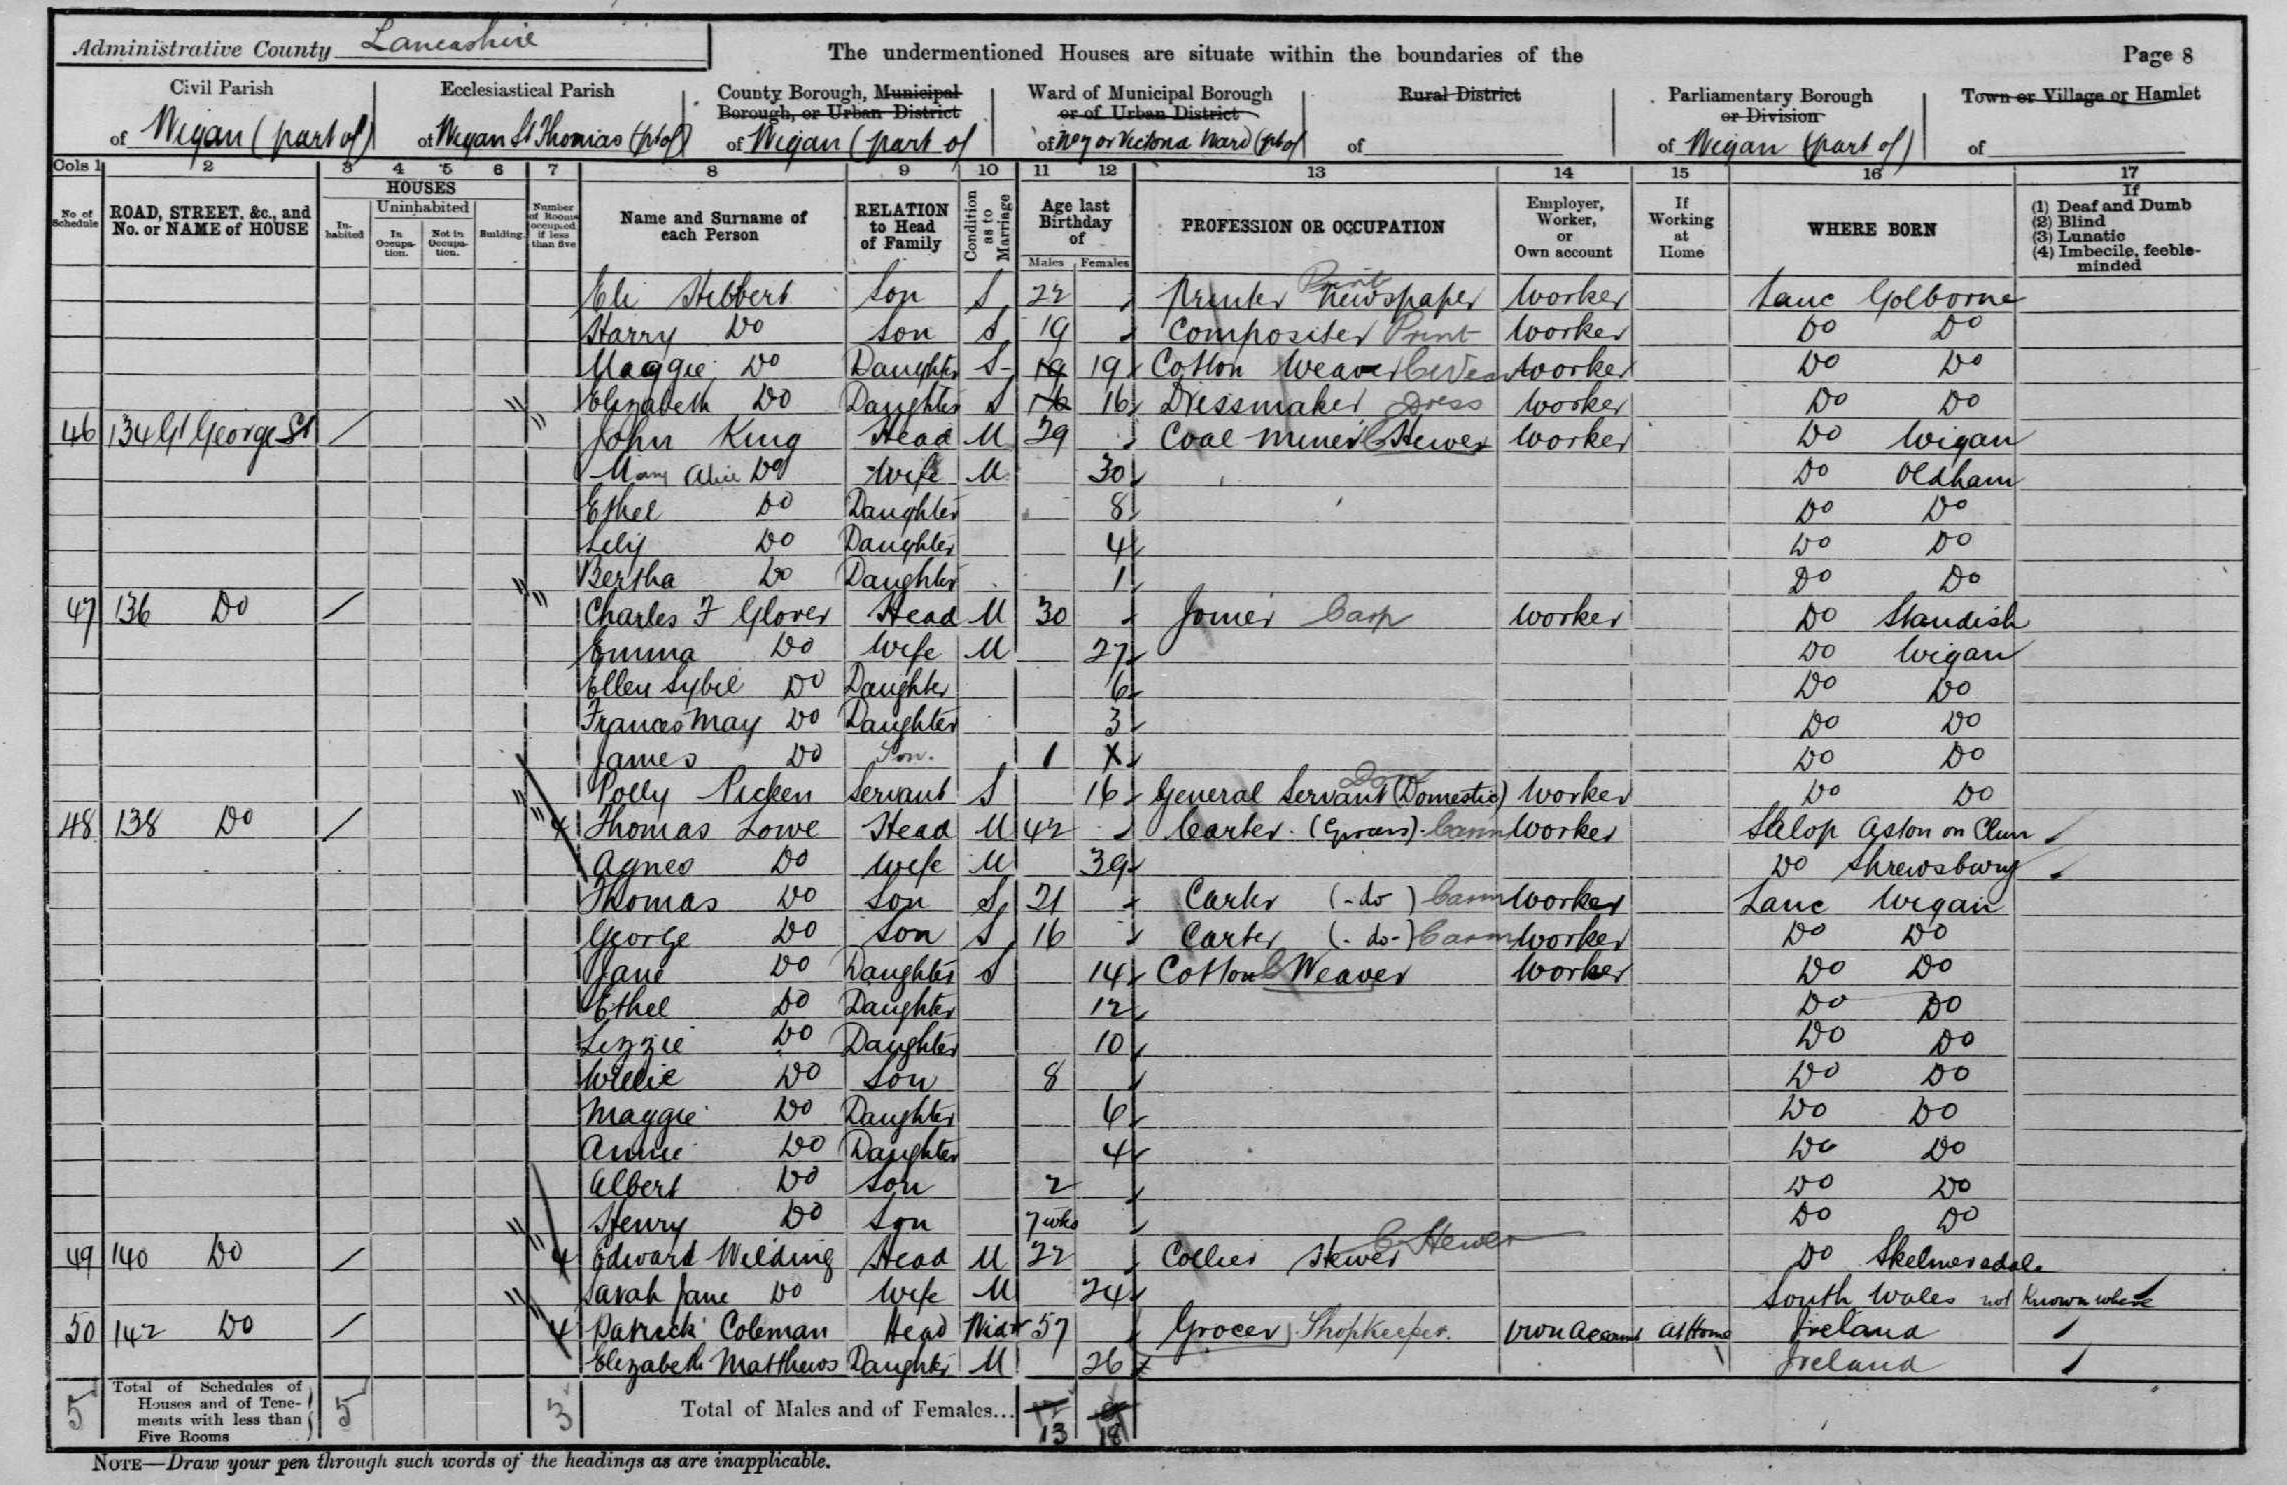 Administrative County Lancashire
The undermentioned Houses are situate within the boundaries of the
Page 8
Civil Parish
of Wigan (part of)
Ecclesiastical Parish
of Wigan St Thomas (pt of)
County Borough, Municipal
Borough, or Urban District
of Wigan (part of
Ward of Municipal Borough
or of Urban District
of No 7 or Victoria Ward (pt of
Rural District
of
Parliamentary Borough
or Division
of Wigan (part of)
Town or Village or Hamlet
of
Cols 1 2 3 4 5 6 7 8 9 10 11 12 13 14 15 16 17
No of Schedule
ROAD, STREET, &c., and No. or NAME of HOUSE
HOUSES
In-habited
Uninhabited
In Occupa-tion.
Not in Occupa-tion.
Building
Number of Rooms occupied if less than five
Name and Surname of each Person
RELATION to Head of Family
Condition as to Marriage
Age last Birthday of
Males Females
PROFESSION OR OCCUPATION
Employer, Worker, or Own account
If Working at Home
WHERE BORN
If
(1) Deaf and Dumb
(2) Blind
(3) Lunatic
(4) Imbecile, feeble-minded
Eli Hebbert Son S 22 Printer Newspaper Print Worker Lanc Golborne
Harry Do Son S 19 Compositer Print Worker Do Do
Maggie Do Daughter S 19 19 Cotton Weaver Worker Do Do
Elizabeth Do Daughter S 16 16 Dressmaker Dress Worker Do Do
46 134 Gt George St John King Head M 29 Coal Miner Hewer Worker Do Wigan
Mary Alice Do Wife M 30 Do Oldham
Ethel Do Daughter 8 Do Do
Lily Do Daughter 4 Do Do
Bertha Do Daughter 1 Do Do
47 136 Do Charles F Glover Head M 30 Joiner Carp Worker Do Standish
Emma Do Wife M 27 Do Wigan
Ellen Sybil Do Daughter 6 Do Do
Frances May Do Daughter 3 Do Do
James Do Son. 1 Do Do
Polly Picken Servant S 16 General Servant (Domestic) Dom Worker Do Do
48 138 Do 4 Thomas Lowe Head M 42 Carter (Grocers) Carm Worker Salop Aston on Clun
Agnes Do Wife M 39 Do Shrewsbury
Thomas Do Son S 21 Carter (-do) Carm Worker Lanc Wigan
George Do Son S 16 Carter (-do-) Carm Worker Do Do
Jane Do Daughter S 14 Cotton Weaver Worker Do Do
Ethel Do Daughter 12 Do Do
Lizzie Do Daughter 10 Do Do
Willie Do Son 8 Do Do
Maggie Do Daughter 6 Do Do
Annie Do Daughter 4 Do Do
Albert Do Son 2 Do Do
Henry Do Son 7 wks Do Do
49 140 Do 4 Edward Wilding Head M 22 Collier Hewer C. Hewer Do Skelmersdale
Sarah Jane Do Wife M 24 South Wales not known where
50 142 Do 4 Patrick Coleman Head Widr 57 Grocer Shopkeeper. Own Account At Home Ireland
Elizabeth Matthews Daughter M 26 Ireland
5 Total of Schedules of Houses and of Tene-ments with less than Five Rooms 5 3 Total of Males and of Females... 12 13 18
NOTE—Draw your pen through such words of the headings as are inapplicable.